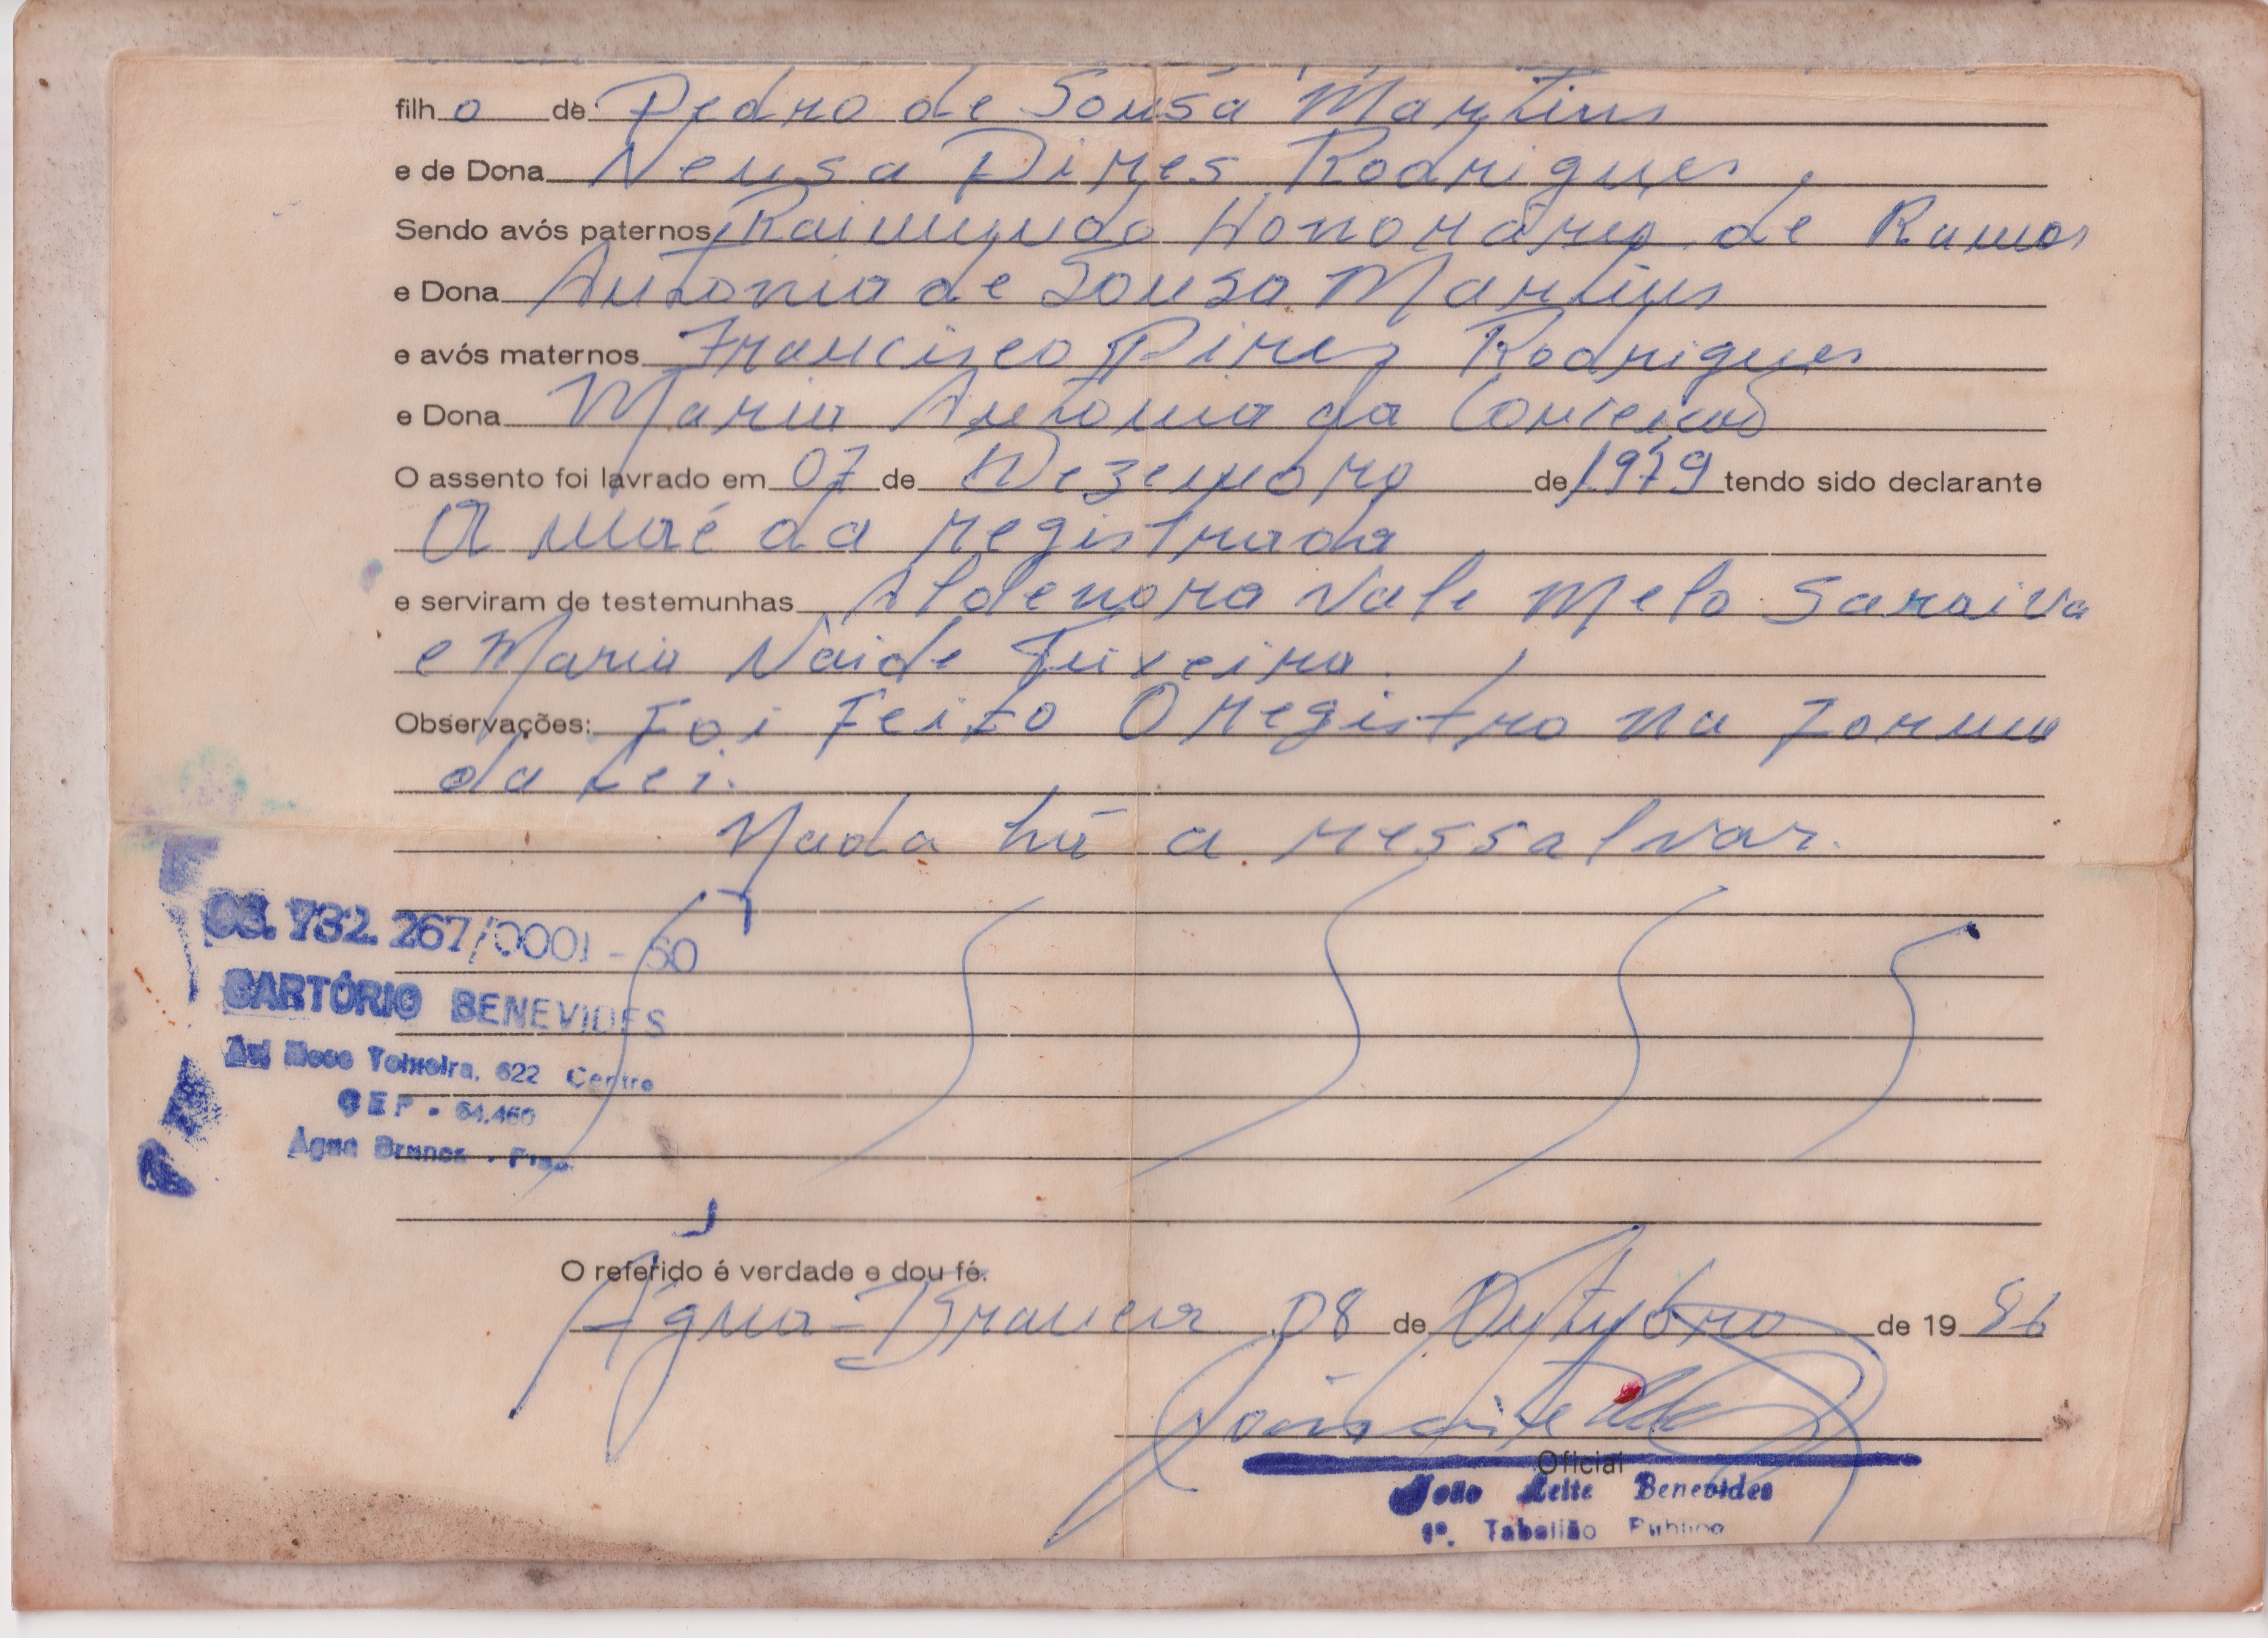 filho de Pedro de Sousa Martins
e de Dona Neusa Pires Rodrigues,
Sendo avós paternos Raimundo Honorário de Ramos
e Dona Antonia de Sousa Martins
e avós maternos Francisco Pires Rodrigues
e Dona Maria Antonia da Conceição
O assento foi lavrado em 07 de Dezembro de 1979 tendo sido declarante
A mãe da registrada
e serviram de testemunhas Aldenora Vale Melo Saraiva
e Maria Naide Teixeira.
Observações: Foi Feito O registro na Forma
da Lei.
Nada há a ressalvar.
732.267/0001-60
CARTÓRIO BENEVIDES
Teixeira, 622 Centro
CEP. 64.460
Agua Branca - Piauí
O referido é verdade e dou fé.
Água-Branca 08 de Outubro de 19
Oficial
João Leite Benevides
1º. Tabelião Público